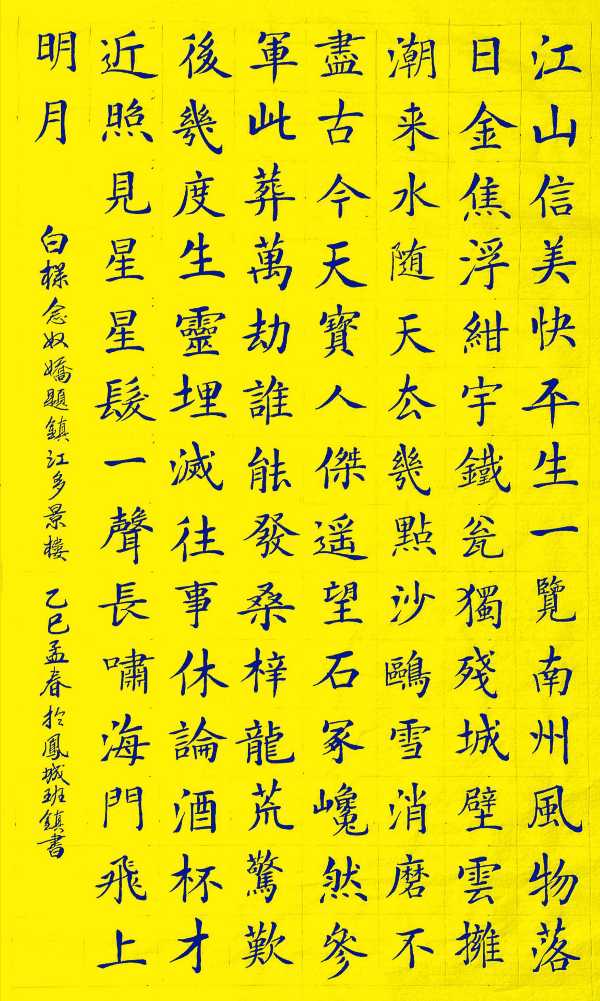 江山信美快平生一覽南州風物落
日金焦浮紺宇鐵瓮獨殘城壁雲擁
潮来水随天去幾點沙鷗雪消磨不
盡古今天寶人傑遥望石冢巉然參
軍此葬萬劫誰能發桑梓龍荒驚歎
後幾度生靈埋滅往事休論酒杯才
近照見星星髮一聲長嘯海門飛上
明月
白樸念奴嬌題鎮江多景樓 乙巳孟春於鳳城班鎮書